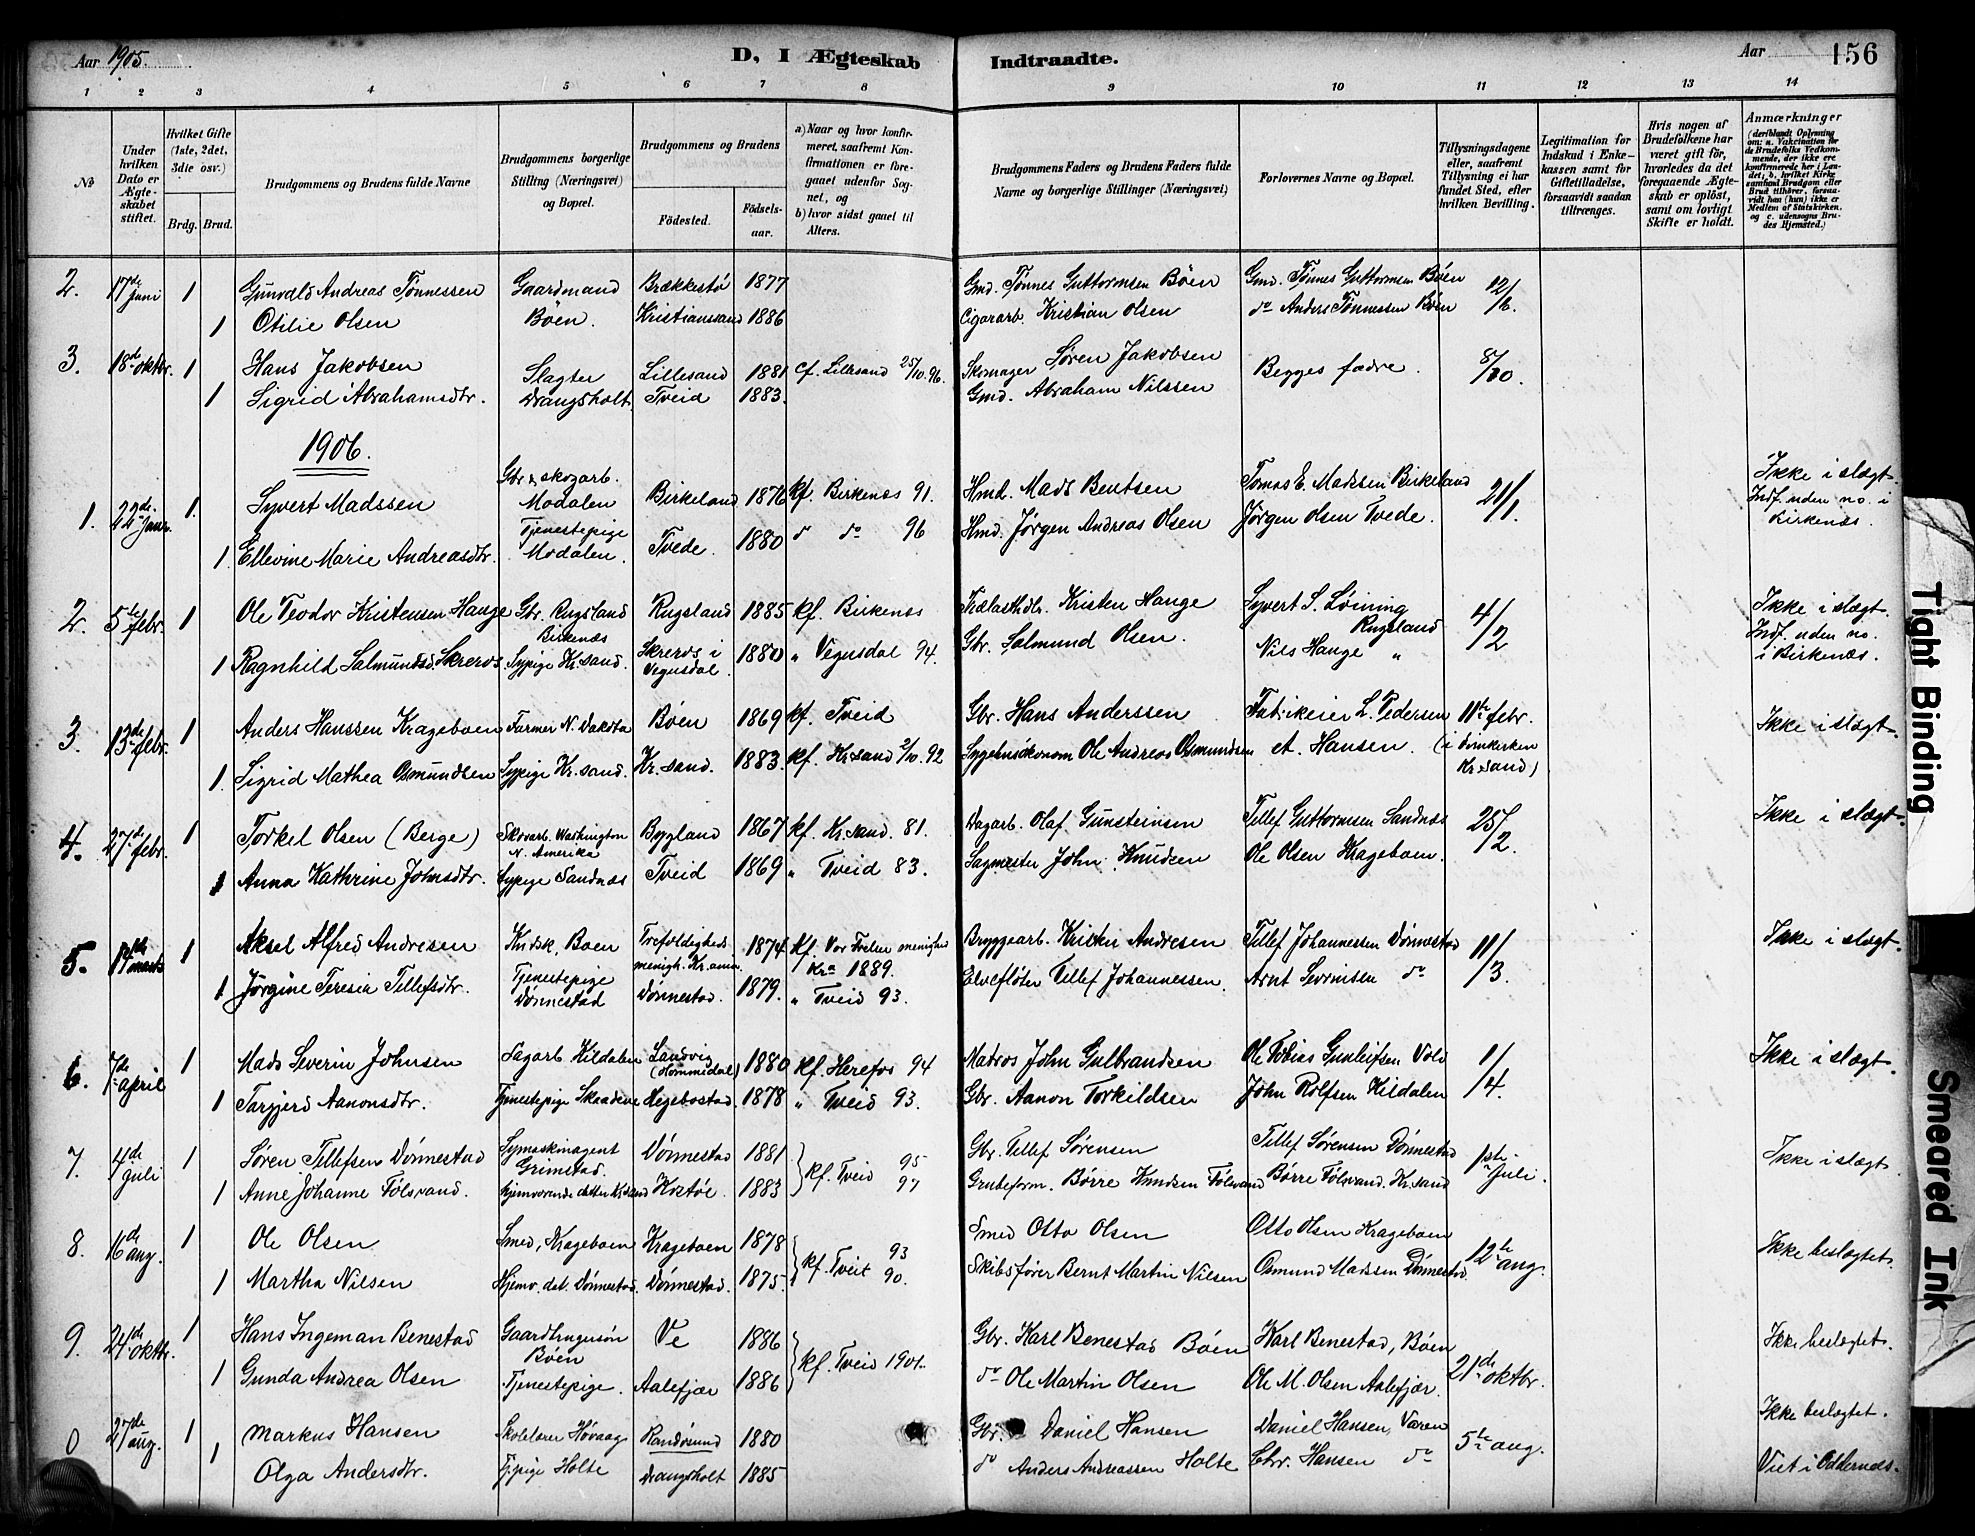 Aar 1905. D, I Ægteskab Indtraadte. Aar 156
1 2 3 4 5 6 7 8 9 10 11 12 13 14
No
Under hvilken Dato er Ægteskabet stiftet.
Hvilket Gifte (1ste, 2det, 3die osv.)
Brdg. Brud.
Brudgommens og Brudens fulde Navne
Brudgommens borgerlige Stilling (Næringsvei) og Bopæl.
Brudgommens og Brudens
Fødested. Fødselsaar.
a) Naar og hvor konfirmeret, saafremt Konfirmationen er foregaaet udenfor Sognet, og
b) hvor sidst gaaet til Alters.
Brudgommens Faders og Brudens Faders fulde Navne og borgerlige Stillinger (Næringsvei)
Forlovernes Navne og Bopæl.
Tillysningsdagene eller, saafremt Tillysning ei har fundet Sted, efter hvilken Bevilling.
Legitimation for Indskud i Enkekassen samt for Giftetilladelse, forsaavidt saadan tiltrænges.
Hvis nogen af Brudefolkene har været gift før, hvorledes da det foregaaende Ægteskab er opløst, samt om lovligt Skifte er holdt.
Anmærkninger
(deriblandt Oplysning om: a. Vakcination for de Brudefolks Vedkommende, der ikke ere konfirmerede her i Landet; b. hvilket Kirkesamfund Brudgom eller Brud tilhører, forsaavidt han (hun) ikke er Medlem af Statskirken, og c. udensogns Brudes Hjemsted.)
2. 17de juni 1 Gunvald Andreas Tønnessen Gaardmand Brækkestø 1877 Gmd. Tønnes Guttormsen Böen Gmd. Tønnes Guttormsen Böen 12/6.
1 Otilie Olsen Böen. Kristianssand 1886 Cigararb. Kristian Olsen do Anders Tønnessen Böen
3. 18de oktbr. 1 Hans Jakobsen Slagter Lillesand 1881 Cf. Lillesand 25/10.96. Skomager Søren Jakobsen Begges fædre. 8/10.
1 Sigrid Abrahamsdtr. Drangsholt Tveid 1883. Gmd. Abraham Nilssen
1906.
1. 22de Janr. 1. Syvert Madssen Gbr & skogarb. Modalen Birkeland 1876 kf. Birkenæs 91. Hmd. Mads Bentsen Tomas E. Madssen Birkeland 21/1. Ikke i slægt. Indf. uden no. i Birkenæs.
1 Ellevine Marie Andreasdtr. Tjenestepige Modalen. Tvede. 1880 d do 96 Hmd. Jørgen Andreas Olsen Jørgen Olsen Tvede.
2. 5te febr. 1 Ole Teodor Kristensen Hauge Gbr. Rugsland Birkenæs Rugsland 1885 kf. Birkenæs Trælasthdl. Kristen Hauge Syvert S. Løining Rugsland 4/2 Ikke i slægt. Indf. uden no. i Birkenæs.
1 Ragnhild Salmundsd. Skreros Sypige Kr.sand. Skreros i Vegusdal. 1880 " Vegusdal 94. Gbr. Salmund Olsen. Nils Hauge "
3. 13de febr. 1 Anders Hanssen Krageboen Farmer N. Dakota Böen 1869 kf. Tveid Gbr. Hans Anderssen Fabrikeier L. Pedersen 11te febr. Ikke i slægt.
1 Sigrid Mathea Osmundsen Sypige Kr.sand. Kr.sand. 1883. kf. Kr.sand 2/10.92 Sygehusökonom Ole Andreas Osmundsen et. Hansen. (i domkirken Kr.sand)
4. 27de febr. 1 Torkel Olsen (Berge) Skovarb. Washington N. Amerika Bygland 1867 kf. Kr.sand. 81. Dagarb. Olaf Gunsteinsen Tellef Guttormsen Sandnæs 25/2. Ikke i slægt.
1 Anna Kathrine Johnsdtr. Sypige Sandnæs Tveid 1869 " Tveid 83. Sagmester John Knudsen Ole Olsen Krageboen.
5. 1 Aksel Alfred Andresen Kudsk, Boen Trefoldigheds menigh. Kr.ania 1874 kf. Vor Frelser menighed Kra 1889. Bryggearb. Kristen Andresen Tellef Johannessen Dönnestad 11/3. Ikke i slægt.
1 Jørgine Teresia Tellefsdtr. Tjenestepige Dønnestad Dönnestad. 1879. " Tveid 93. Elvefløter Tellef Johannessen. Arnt Severinsen do
6. 7de april 1 Mads Severin Johnsen Sagarb Kildalen Landvig (Hommedal) 1880 kf. Herefos 94 Matros John Gulbrandsen Ole Tobias Gunleifsen Vole 1/4. Ikke i slægt.
1 Targjerd Aanonsdtr. Tjenestepige Skaadene Hegebostad. 1878 " Tveid 93. Gbr. Aanon Torkildsen John Rolfsen Kildalen
7. 4de juli 1 Søren Tellefsen Dønnestad Symaskinagent Grimstad. Dønnestad 1881 kf. Tveid 95 Gbr. Tellef Sørensen Tellef Sørensen Dönnestad 1ste Juli. Ikke i slægt
1 Anne Johanne Fölsvand. hjemværende datter Kr.sand 1883 97 Grubeform. Börre Knudsen Fölsvand Börre Fölsvand. Kr.sand
8. 16de aug. 1 Ole Olsen Smed, Krageboen Krageboen 1878 kf. Tveit 93 Smed Otto Olsen Otto Olsen Krageboen 12te aug. Ikke beslægtet.
1 Martha Nilsen Hjemv. dat. Dönnestad. Dönnestad. 1875 90. Skibsfører Bernt Martin Nilsen Osmund Madssen Dönnestad.
9. 24de oktbr. 1 Hans Ingeman Benestad Gaardbrugersön Böen Ve 1886 kf. Tveid 1901. Gbr. Karl Benestad Böen Karl Benestad, Böen 21de oktbr. Ikke beslægtet.
1 Gunda Andrea Olsen Tjenestepige. Aalefjær 1886 do Ole Martin Olsen Ole M. Olsen Aalefjær.
0 27de aug. 1 Markus Hansen Skolelærer Høvaag Randøsund 1880 Gbr. Daniel Hansen Daniel Hansen, Væren 5te aug. Ikke beslægtet.
1 Olga Andersdtr. Tj.pige Holte Drangsholt 1885 do Anders Andreassen Holte Chr. Hansen do Viet i Oddernes.
Tight Binding
Smeared Ink